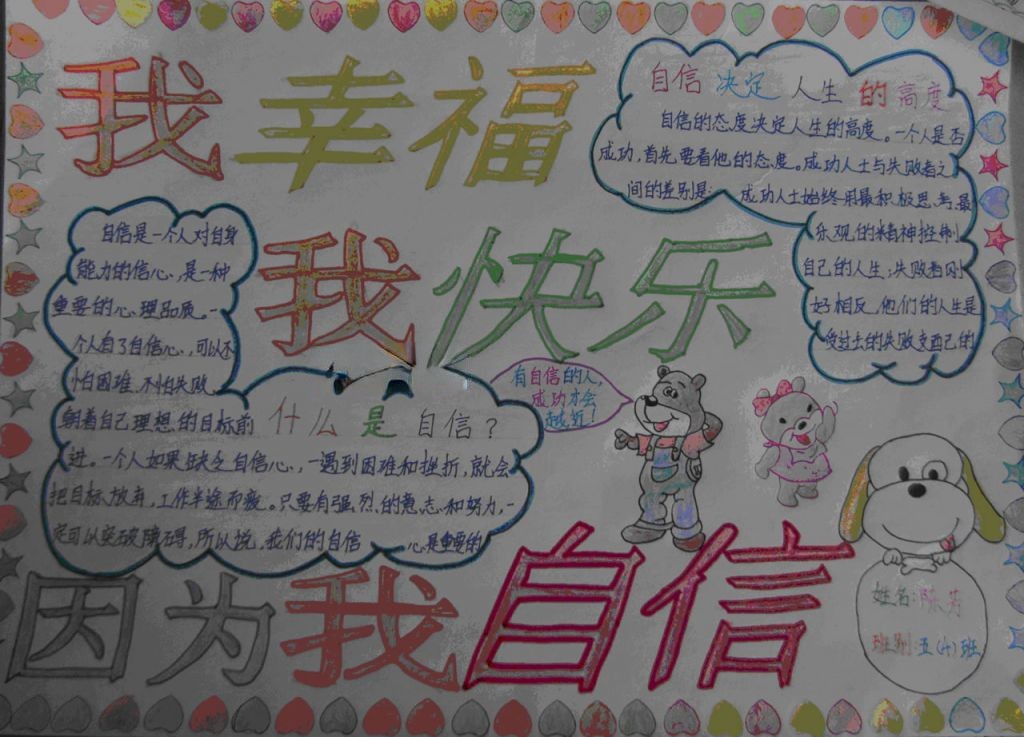 我幸福
我快乐
因为我自信
自信决定人生的高度
自信的态度决定人生的高度。一个人是否
成功,首先要看他的态度。成功人士与失败者之
间的差别是: 成功人士始终用最积极思考,最
乐观的精神控制
自己的人生;失败者刚
好相反,他们的人生是
受过去的失败支配的
自信是一个人对自身
能力的信心,是一种
重要的心理品质。一
个人有了自信心,可以不
怕困难,不怕失败,
朝着自己理想的目标前
什么是自信?
进。一个人如果缺乏自信心,一遇到困难和挫折,就会
把目标放弃,工作半途而废。只要有强烈的意志和努力,一
定可以突破障碍,所以说,我们的自信 心是重要的
有自信的人,
成功才会
越近!
姓名:陈芳
班别:五(4)班